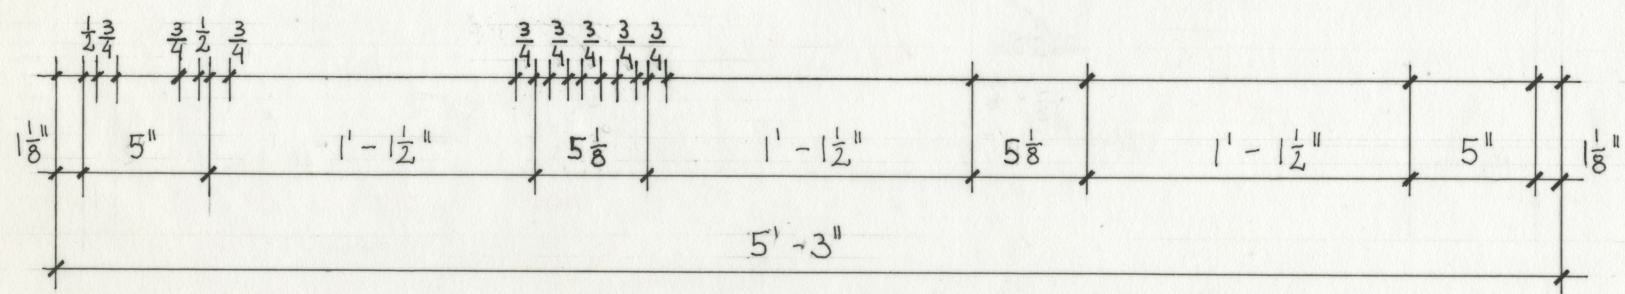 1/2 3/4 3/4 1/2 3/4 3/4 3/4 3/4 3/4 3/4
1 1/8" 5" 1' - 1 1/2" 5 1/8 1' - 1 1/2" 5 1/8 1' - 1 1/2" 5" 1 1/8"
5' - 3"